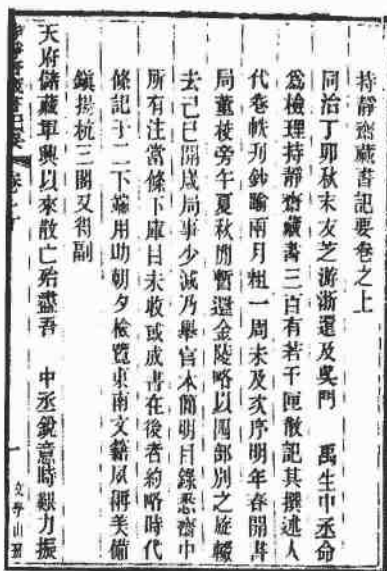 持靜齋藏書記要卷之上
同治丁卯秋末友芝游浙還及吳門　禹生中丞命
爲檢理持靜齋藏書三百有若干匣散記其撰述人
代卷帙刊鈔踰兩月粗一周未及次序明年春開書
局董校旁午夏秋間暫還金陵略以四部別之旋輟
去己巳開歲局事少減乃舉官本簡明目錄悉齋中
所有注當條下庫目未收或成書在後者約略時代
條記于二下端用助朝夕檢覽東南文籍夙稱美備
鎮揚杭三閣又得副
天府儲藏軍興以來散亡殆盡吾　中丞銳意時艱力振
一　文學山房